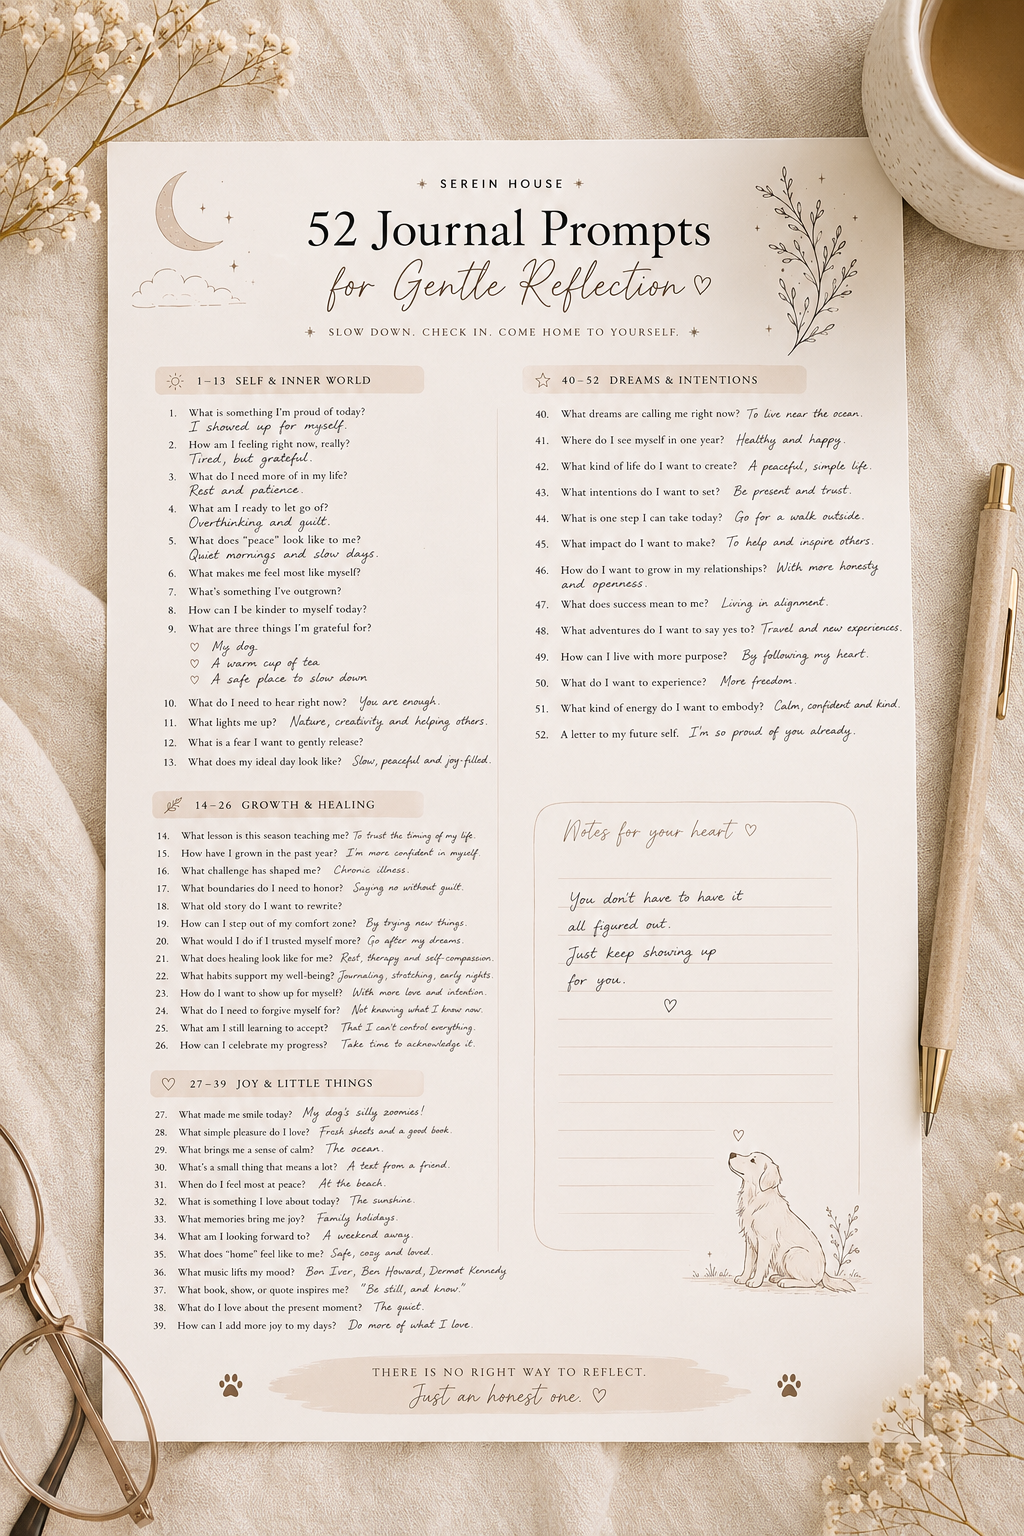 SEREIN HOUSE
52 Journal Prompts
for Gentle Reflection
SLOW DOWN. CHECK IN. COME HOME TO YOURSELF.
1–13 SELF & INNER WORLD
1. What is something I'm proud of today?
I showed up for myself.
2. How am I feeling right now, really?
Tired, but grateful.
3. What do I need more of in my life?
Rest and patience.
4. What am I ready to let go of?
Overthinking and guilt.
5. What does “peace” look like to me?
Quiet mornings and slow days.
6. What makes me feel most like myself?
7. What's something I've outgrown?
8. How can I be kinder to myself today?
9. What are three things I'm grateful for?
♡ My dog
♡ A warm cup of tea
♡ A safe place to slow down
10. What do I need to hear right now? You are enough.
11. What lights me up? Nature, creativity and helping others.
12. What is a fear I want to gently release?
13. What does my ideal day look like? Slow, peaceful and joy-filled.
14–26 GROWTH & HEALING
14. What lesson is this season teaching me? To trust the timing of my life.
15. How have I grown in the past year? I'm more confident in myself.
16. What challenge has shaped me? Chronic illness.
17. What boundaries do I need to honor? Saying no without guilt.
18. What old story do I want to rewrite?
19. How can I step out of my comfort zone? By trying new things.
20. What would I do if I trusted myself more? Go after my dreams.
21. What does healing look like for me? Rest, therapy and self-compassion.
22. What habits support my well-being? Journaling, stretching, early nights.
23. How do I want to show up for myself? With more love and intention.
24. What do I need to forgive myself for? Not knowing what I know now.
25. What am I still learning to accept? That I can't control everything.
26. How can I celebrate my progress? Take time to acknowledge it.
27–39 JOY & LITTLE THINGS
27. What made me smile today? My dog's silly zoomies!
28. What simple pleasure do I love? Fresh sheets and a good book.
29. What brings me a sense of calm? The ocean.
30. What's a small thing that means a lot? A text from a friend.
31. When do I feel most at peace? At the beach.
32. What is something I love about today? The sunshine.
33. What memories bring me joy? Family holidays.
34. What am I looking forward to? A weekend away.
35. What does “home” feel like to me? Safe, cozy and loved.
36. What music lifts my mood? Bon Iver, Ben Howard, Dermot Kennedy
37. What book, show, or quote inspires me? "Be still, and know."
38. What do I love about the present moment? The quiet.
39. How can I add more joy to my days? Do more of what I love.
40–52 DREAMS & INTENTIONS
40. What dreams are calling me right now? To live near the ocean.
41. Where do I see myself in one year? Healthy and happy.
42. What kind of life do I want to create? A peaceful, simple life.
43. What intentions do I want to set? Be present and trust.
44. What is one step I can take today? Go for a walk outside.
45. What impact do I want to make? To help and inspire others.
46. How do I want to grow in my relationships? With more honesty
and openness.
47. What does success mean to me? Living in alignment.
48. What adventures do I want to say yes to? Travel and new experiences.
49. How can I live with more purpose? By following my heart.
50. What do I want to experience? More freedom.
51. What kind of energy do I want to embody? Calm, confident and kind.
52. A letter to my future self. I'm so proud of you already.
Notes for your heart ♡
You don't have to have it
all figured out.
Just keep showing up
for you.
THERE IS NO RIGHT WAY TO REFLECT.
Just an honest one. ♡